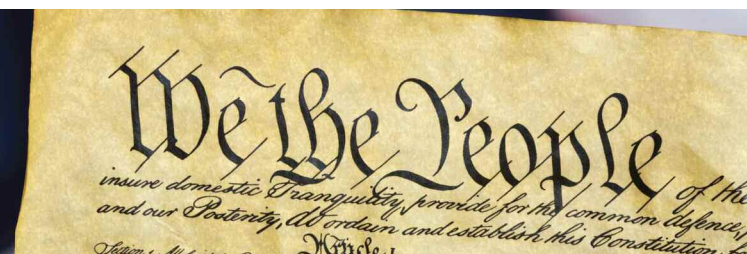 We the People of the
insure domestic Tranquility, provide for the common defence,
and our Posterity, do ordain and establish this Constitution
Article I
Section